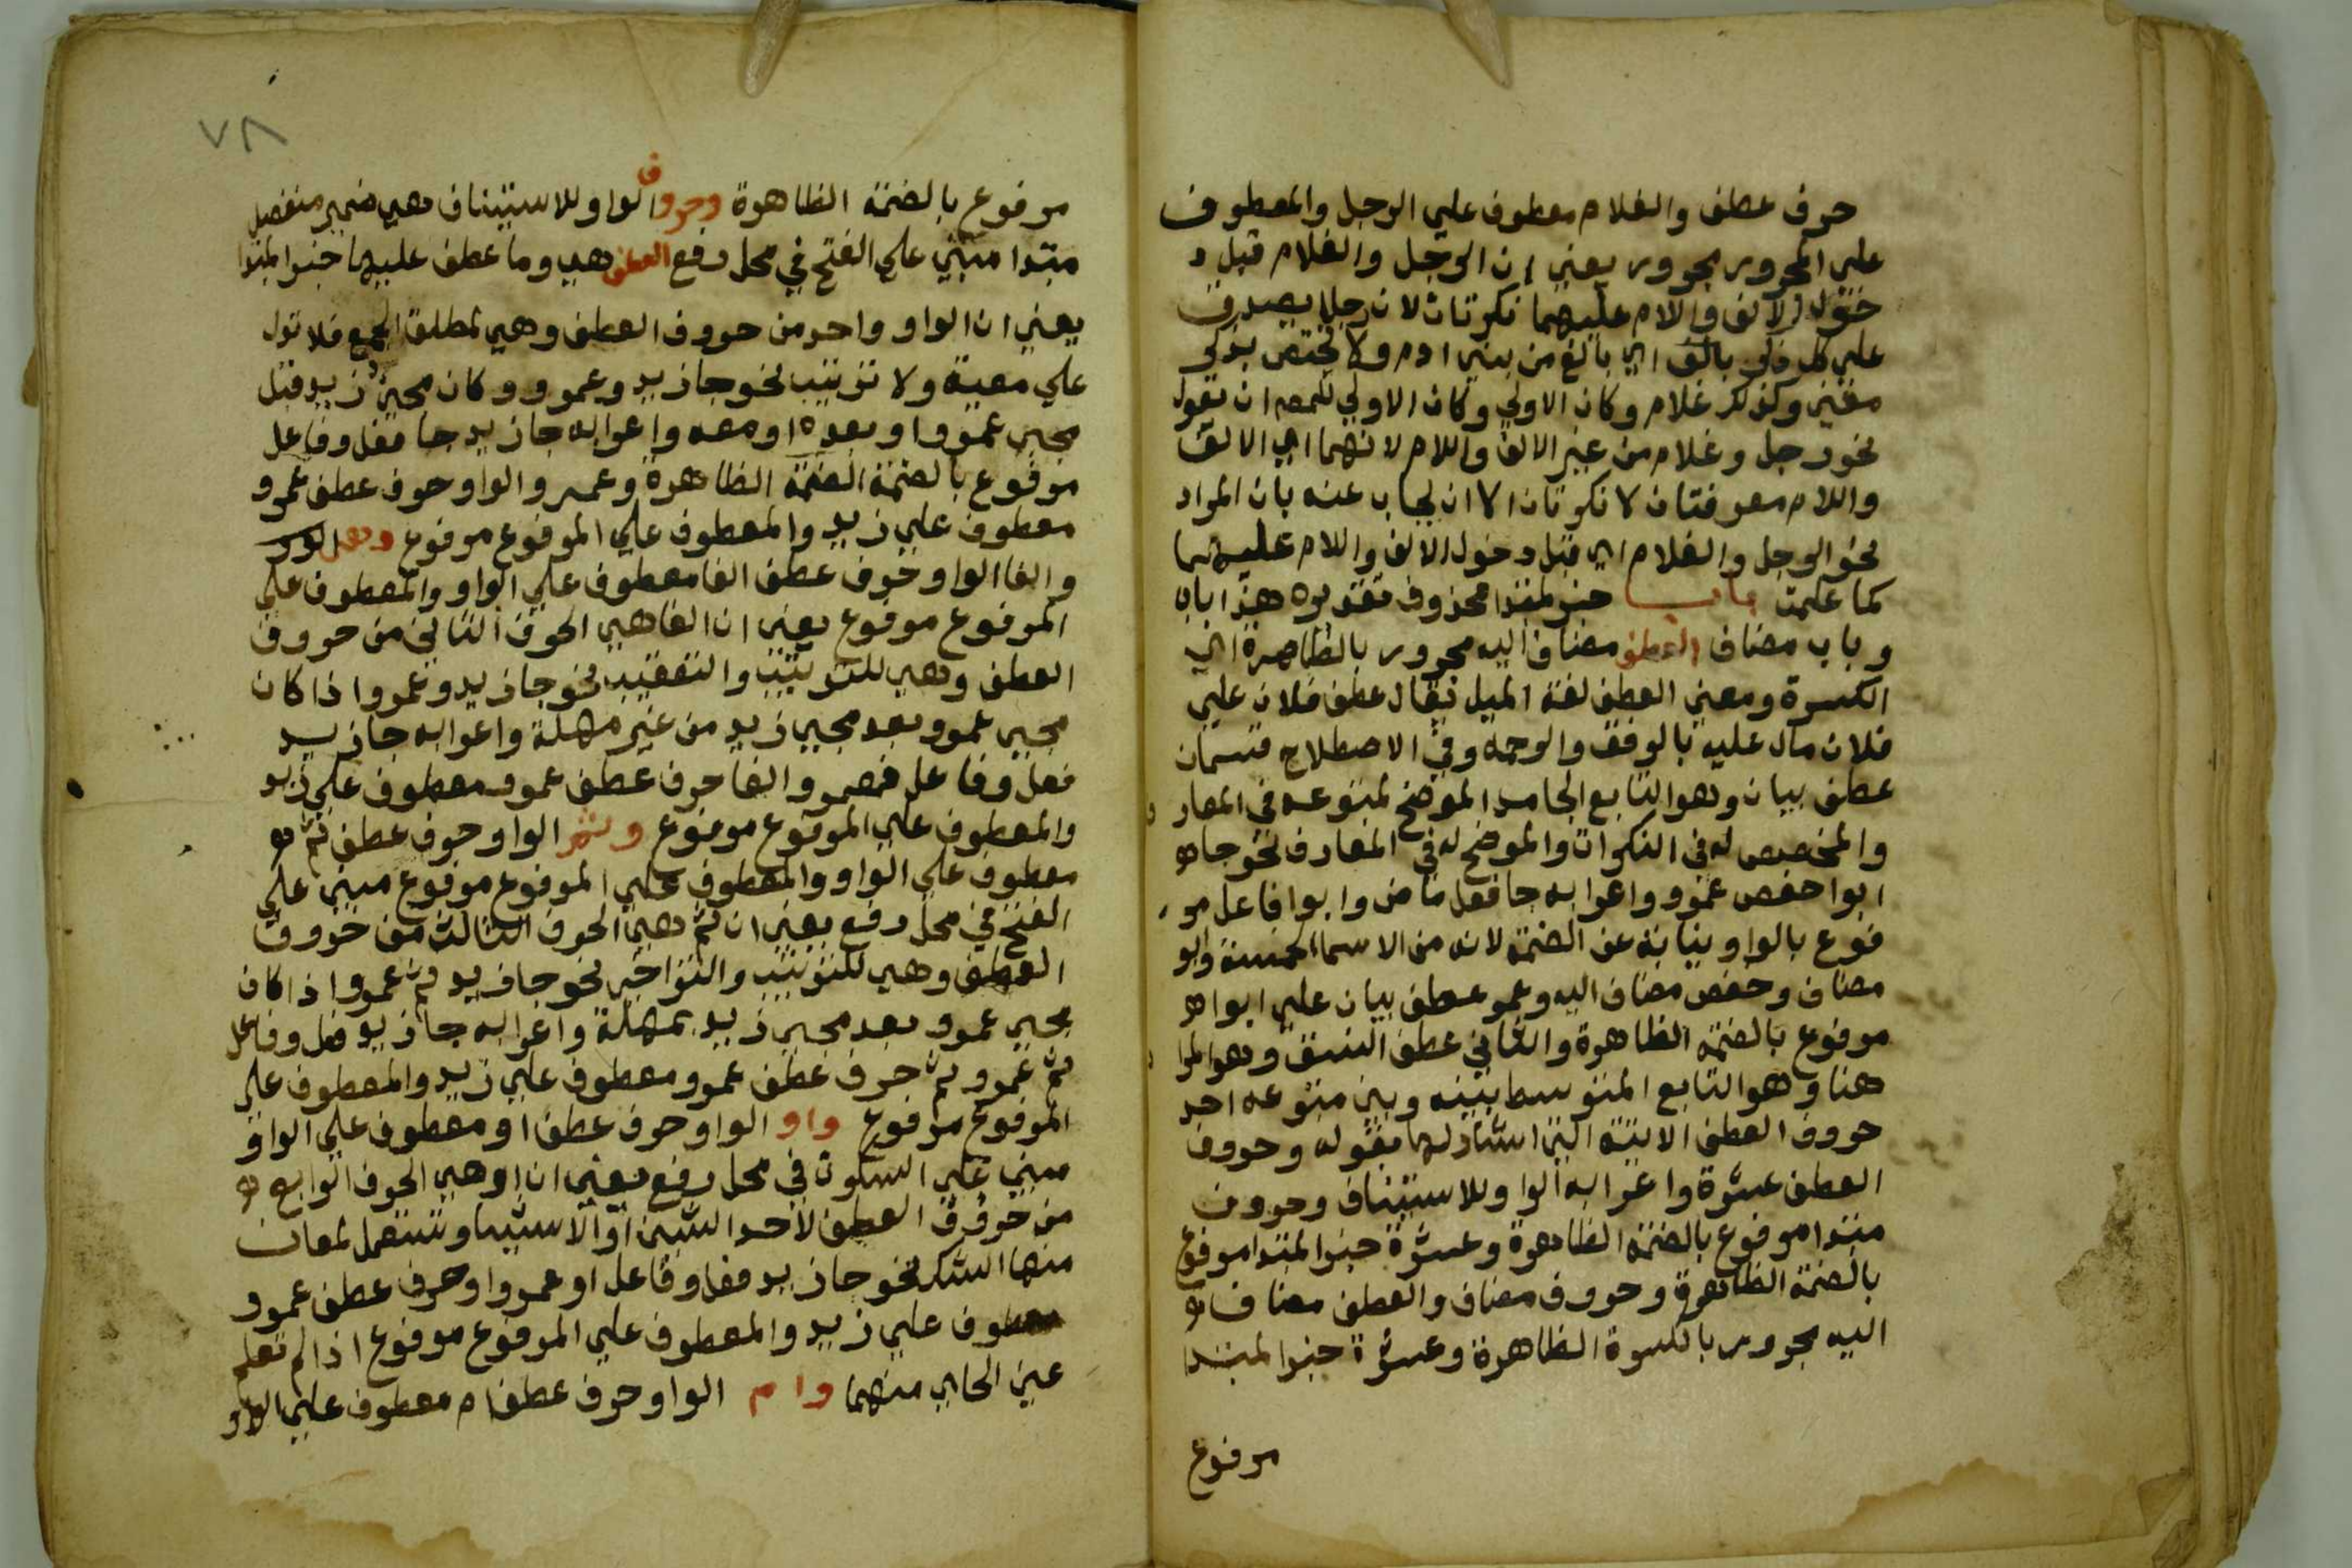 حرف عطف والغلام معطوف علي الرجل والمعطوف
علي المجرور مجرور يعني ان الرجل والغلام قبل د
خول الالف والام عليهما نكرتان لان رجلا يصدق
علي كل ذكر بالغ اي بالغ من بني ادم ولا يختص بذكر
معين وكذلك غلام وكان الاولي وكان الاولي للمصـ ان تقول
نحو رجل وغلام من غير الالف واللام لانهما اي الالف
واللام معرفتان لا نكرتان الا ان يجاب عنه بان المراد
نحو الرجل والغلام اي قبل دخول الالف واللام عليهما
كما علمت باب خبر لمبتدا محذوف تقديره هذا باب
وباب مضاف العطف مضاف اليه مجرور بالظاهرة اي
الكسرة ومعني العطف لغة الميل يقال عطف فلان علي
فلان مال عليه بالرفق والرحمة وفي الاصطلاح قسمان
عطف بيان وهو التابع الجامد الموضح لمتبوعه في المعار
والمخصص له في النكرات والموضح له في المعارف نحو جا
ابوا حفص عمرو واعرابه جا فعل ماض وابوا فاعل مر
فوع بالواو نيابة عن الضمة لانه من الاسما الخمسة وابو
مضاف وحفص مضاف اليه وعمر عطف بيان علي ابوا
مرفوع بالضمة الظاهرة والثاني عطف النسق وهو المرا
هنا وهو التابع المتوسط بينه وبين متبوعه احد
حروف العطف الاتية التي اشار لها بقوله وحروف
العطف عشرة واعرابه الواو للاستيناف وحروف
مبتدا مرفوع بالضمة الظاهرة وعشرة خبر المبتدا مرفوع
بالضمة الظاهرة وحروف مضاف والعطف مضاف
اليه مجرور بالكسرة الظاهرة وعشرة خبر المبتدا
مرفوع
٧٨
مرفوع بالضمة الظاهرة وحروف الواو للاستيناف هي ضمير منفصل
مبتدا مبني علي الفتح في محل رفع العطف هي وما عطف عليها خبر المبتدا
يعني ان الواو واحد من حروف العطف وهي لمطلق الجمع فلا تدل
علي معية ولا ترتيب نحو جا زيد وعمرو وكان مجيئ زيد قبل
مجيئ عمرو او بعده او معه واعرابه جا زيد جا فعل وفاعل
مرفوع بالضمة الضمة الظاهرة وعمرو الواو حرف عطف عمرو
معطوف علي زيد والمعطوف علي المرفوع مرفوع
والفا الواو حرف عطف الفا معطوف علي الواو والمعطوف علي
المرفوع مرفوع يعني ان الفا هي الحرف الثاني من حروف
العطف وهي للترتيب والتعقيب نحو جا زيد وعمرو اذا كان
مجيي عمرو بعد مجيي زيد من غير مهلة واعرابه جا زيد
فعل وفاعل فعمرو الفا حرف عطف عمرو معطوف علي زيد
والمعطوف علي المرفوع مرفوع وثم الواو حرف عطف ثم
معطوف علي الواو والمعطوف علي المرفوع مرفوع مبني علي
الفتح في محل رفع يعني ان ثم هي الحرف الثالث من حروف
العطف وهي للترتيب والتراخي نحو جا زيد ثم عمرو اذا كان
مجيي عمرو بعد مجيي زيد بمهلة واعرابه جا زيد فعل وفاعل
ثم عمرو ثم حرف عطف عمرو معطوف علي زيد والمعطوف علي
المرفوع مرفوع واو الواو حرف عطف او معطوف علي الواو
مبني علي السكون في محل رفع يعني ان او هي الحرف الرابع
من حروف العطف لاحد الشيئين او الاشيا وتستعمل لمعان
منها الشك نحو جا زيد فعل وفاعل او عمرو او حرف عطف عمرو
معطوف علي زيد والمعطوف علي المرفوع مرفوع اذا لم تعلم
عين الجاي منهما وام الواو حرف عطف ام معطوف علي الواو